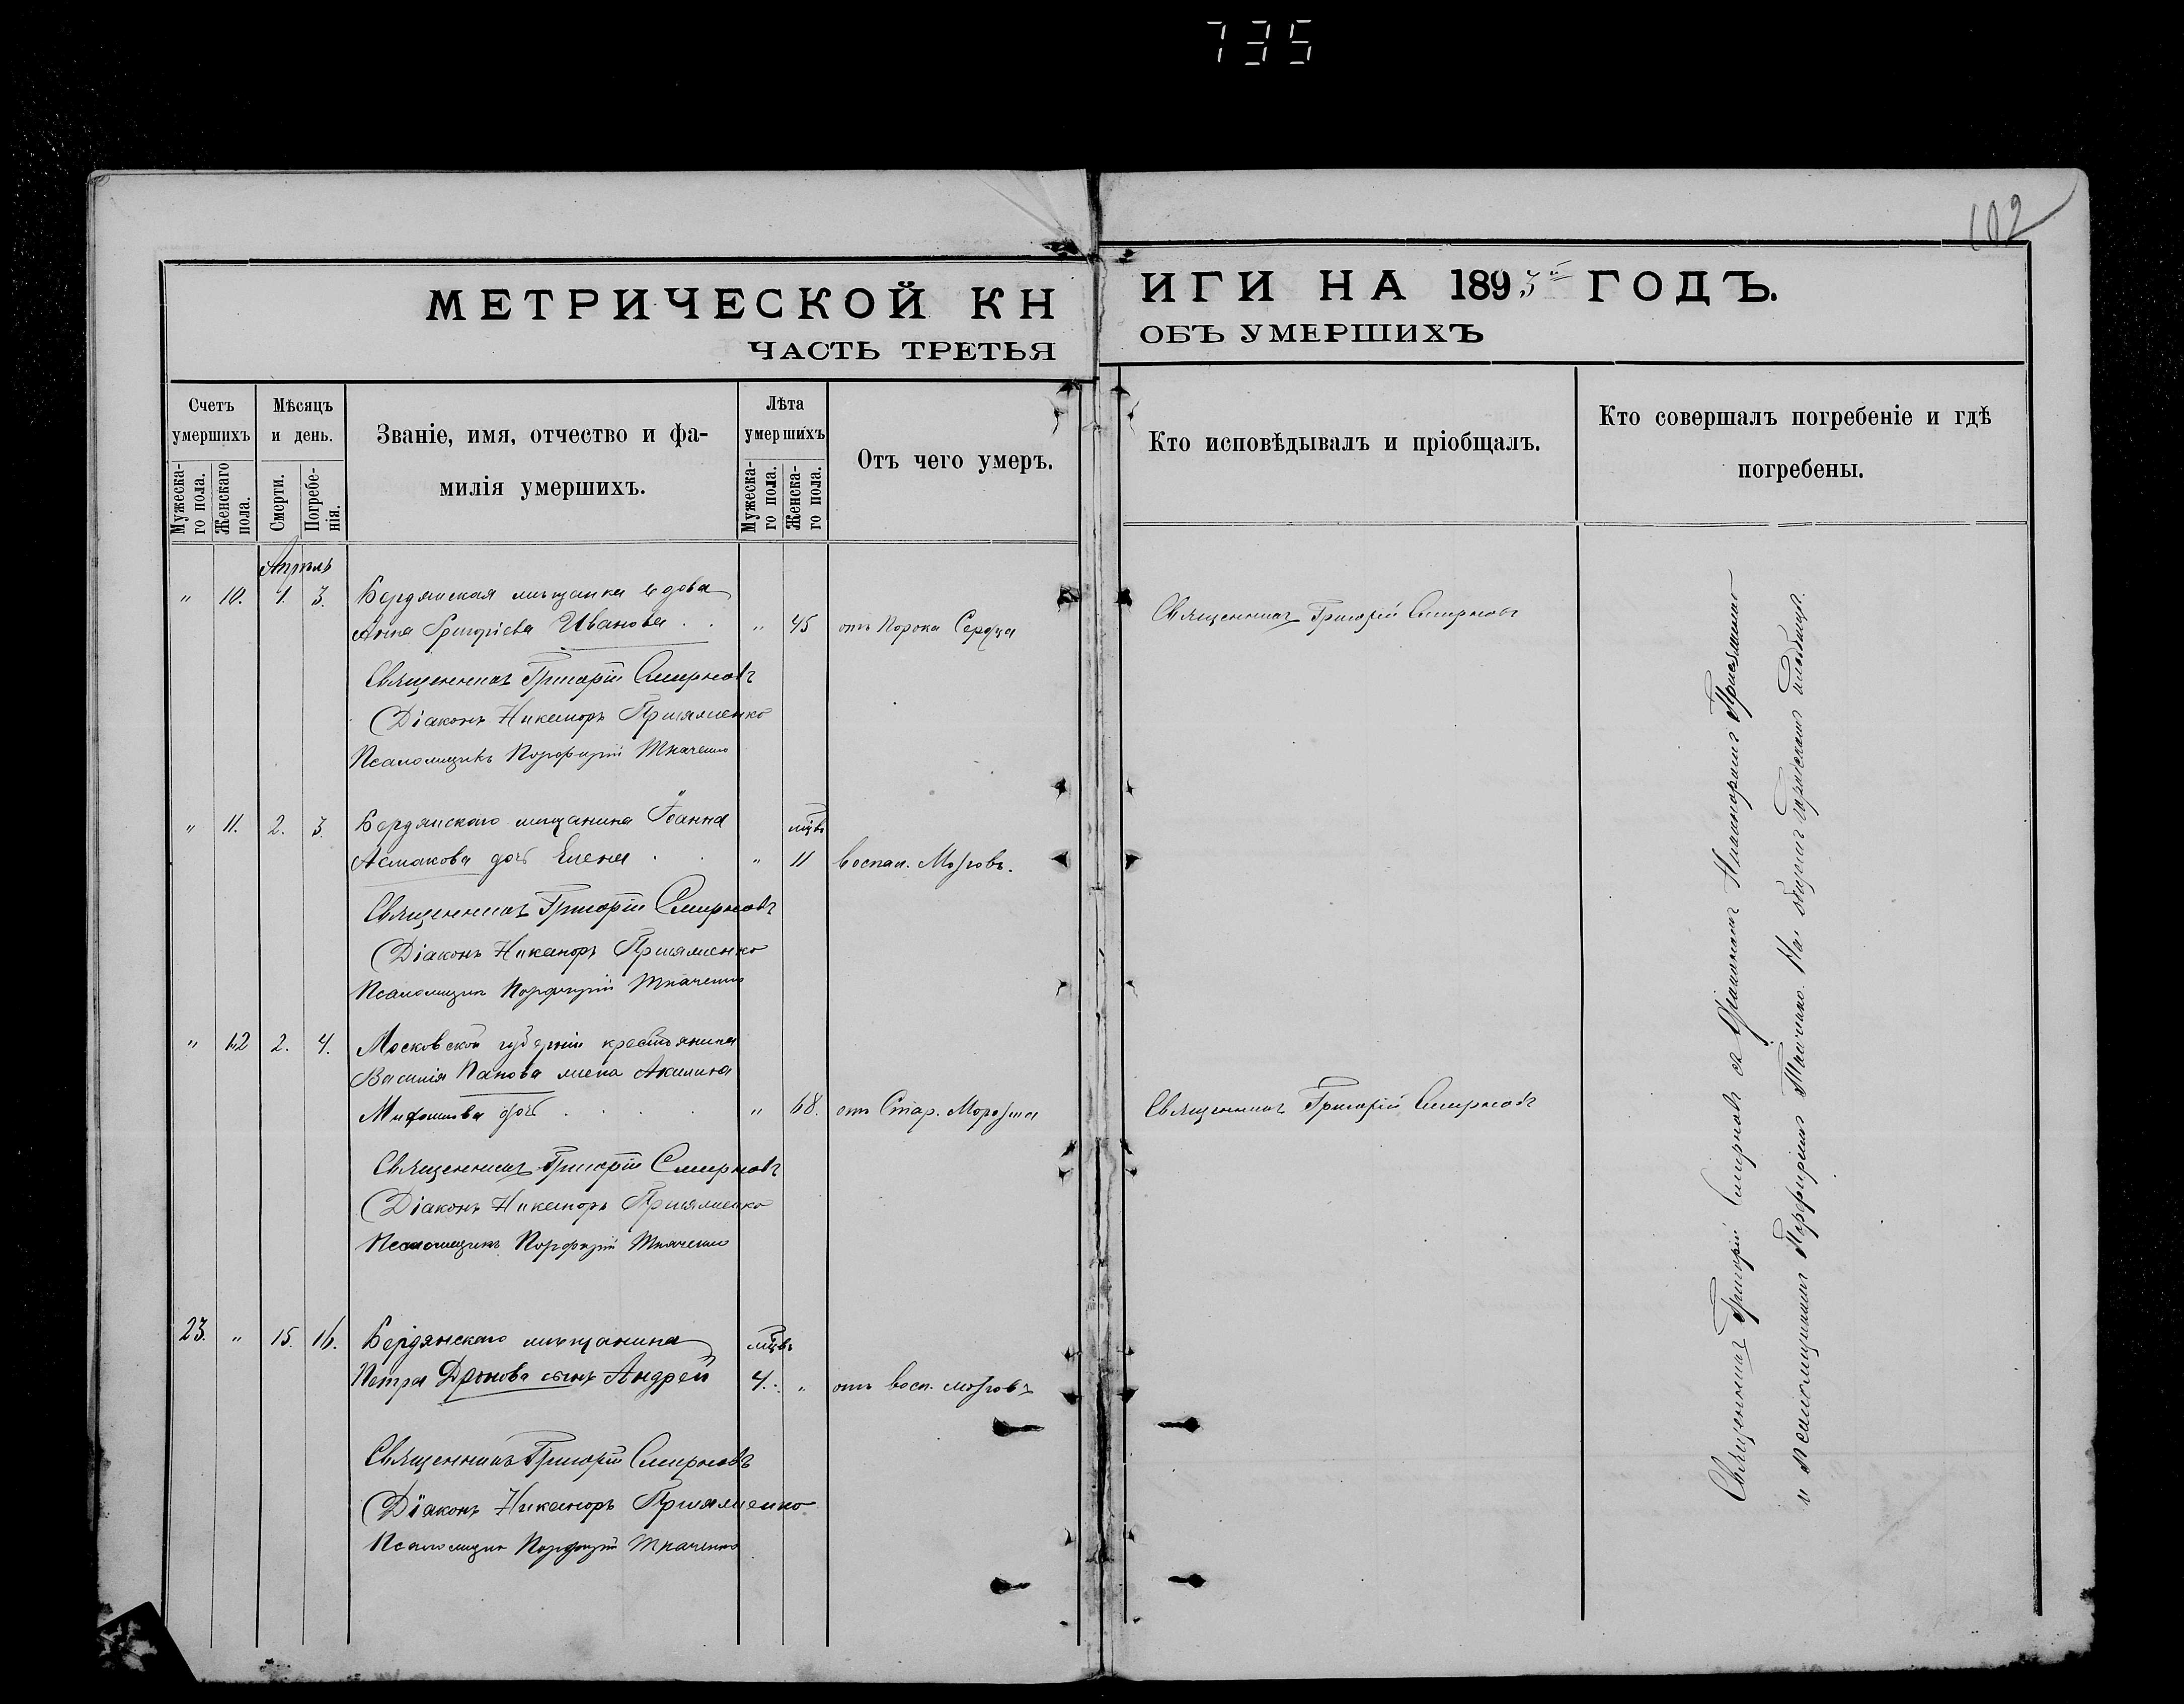 735
102
МЕТРИЧЕСКОЙ КНИГИ НА 1895й ГОДЪ.
ЧАСТЬ ТРЕТЬЯ ОБЪ УМЕРШИХЪ
Счетъ умершихъ
Мужескаго пола.
Женскаго пола.
Мѣсяцъ и день.
Смерти.
Погребенія.
Званіе, имя, отчество и фамилія умершихъ.
Лѣта умершихъ
Мужескаго пола.
Женскаго пола.
Отъ чего умеръ.
Кто исповѣдывалъ и пріобщалъ.
Кто совершалъ погребеніе и гдѣ погребены.
Апрѣль
" 10. 1. 3. Бердянская мѣщанка вдова
Анна Григоріева Иванова . . " 45 отъ Порока Сердца Священникъ Григорій Смирновъ
Священникъ Григорій Смирновъ
Діаконъ Никаноръ
Псаломщикъ Порфирій Ткаченко
" 11. 2. 3. Бердянскаго мѣщанина Іоанна мцвъ
Асмакова дочь Елена . . " 11 воспал. Мозговъ.
Священникъ Григорій Смирновъ
Діаконъ Никаноръ
Псаломщикъ Порфирій Ткаченко
" 12 2. 4. Московской губерніи крестьянина
Василія Панова жена Акилина
дочь . . . . " 68. отъ Стар. Священникъ Григорій Смирновъ
Священникъ Григорій Смирновъ
Діаконъ Никаноръ
Псаломщикъ Порфирій Ткаченко
23. " 15. 16. Бердянскаго мѣщанина мцвъ
Петра Дронова сынъ Андрей 4. " отъ восп. мозговъ
Священникъ Григорій Смирновъ
Діаконъ Никаноръ
Псаломщикъ Порфирій Ткаченко
Священникъ Григорій Смирновъ съ Діакономъ Никаноромъ
и псаломщикомъ Порфиріемъ Ткаченко. На общемъ городскомъ кладбищѣ.